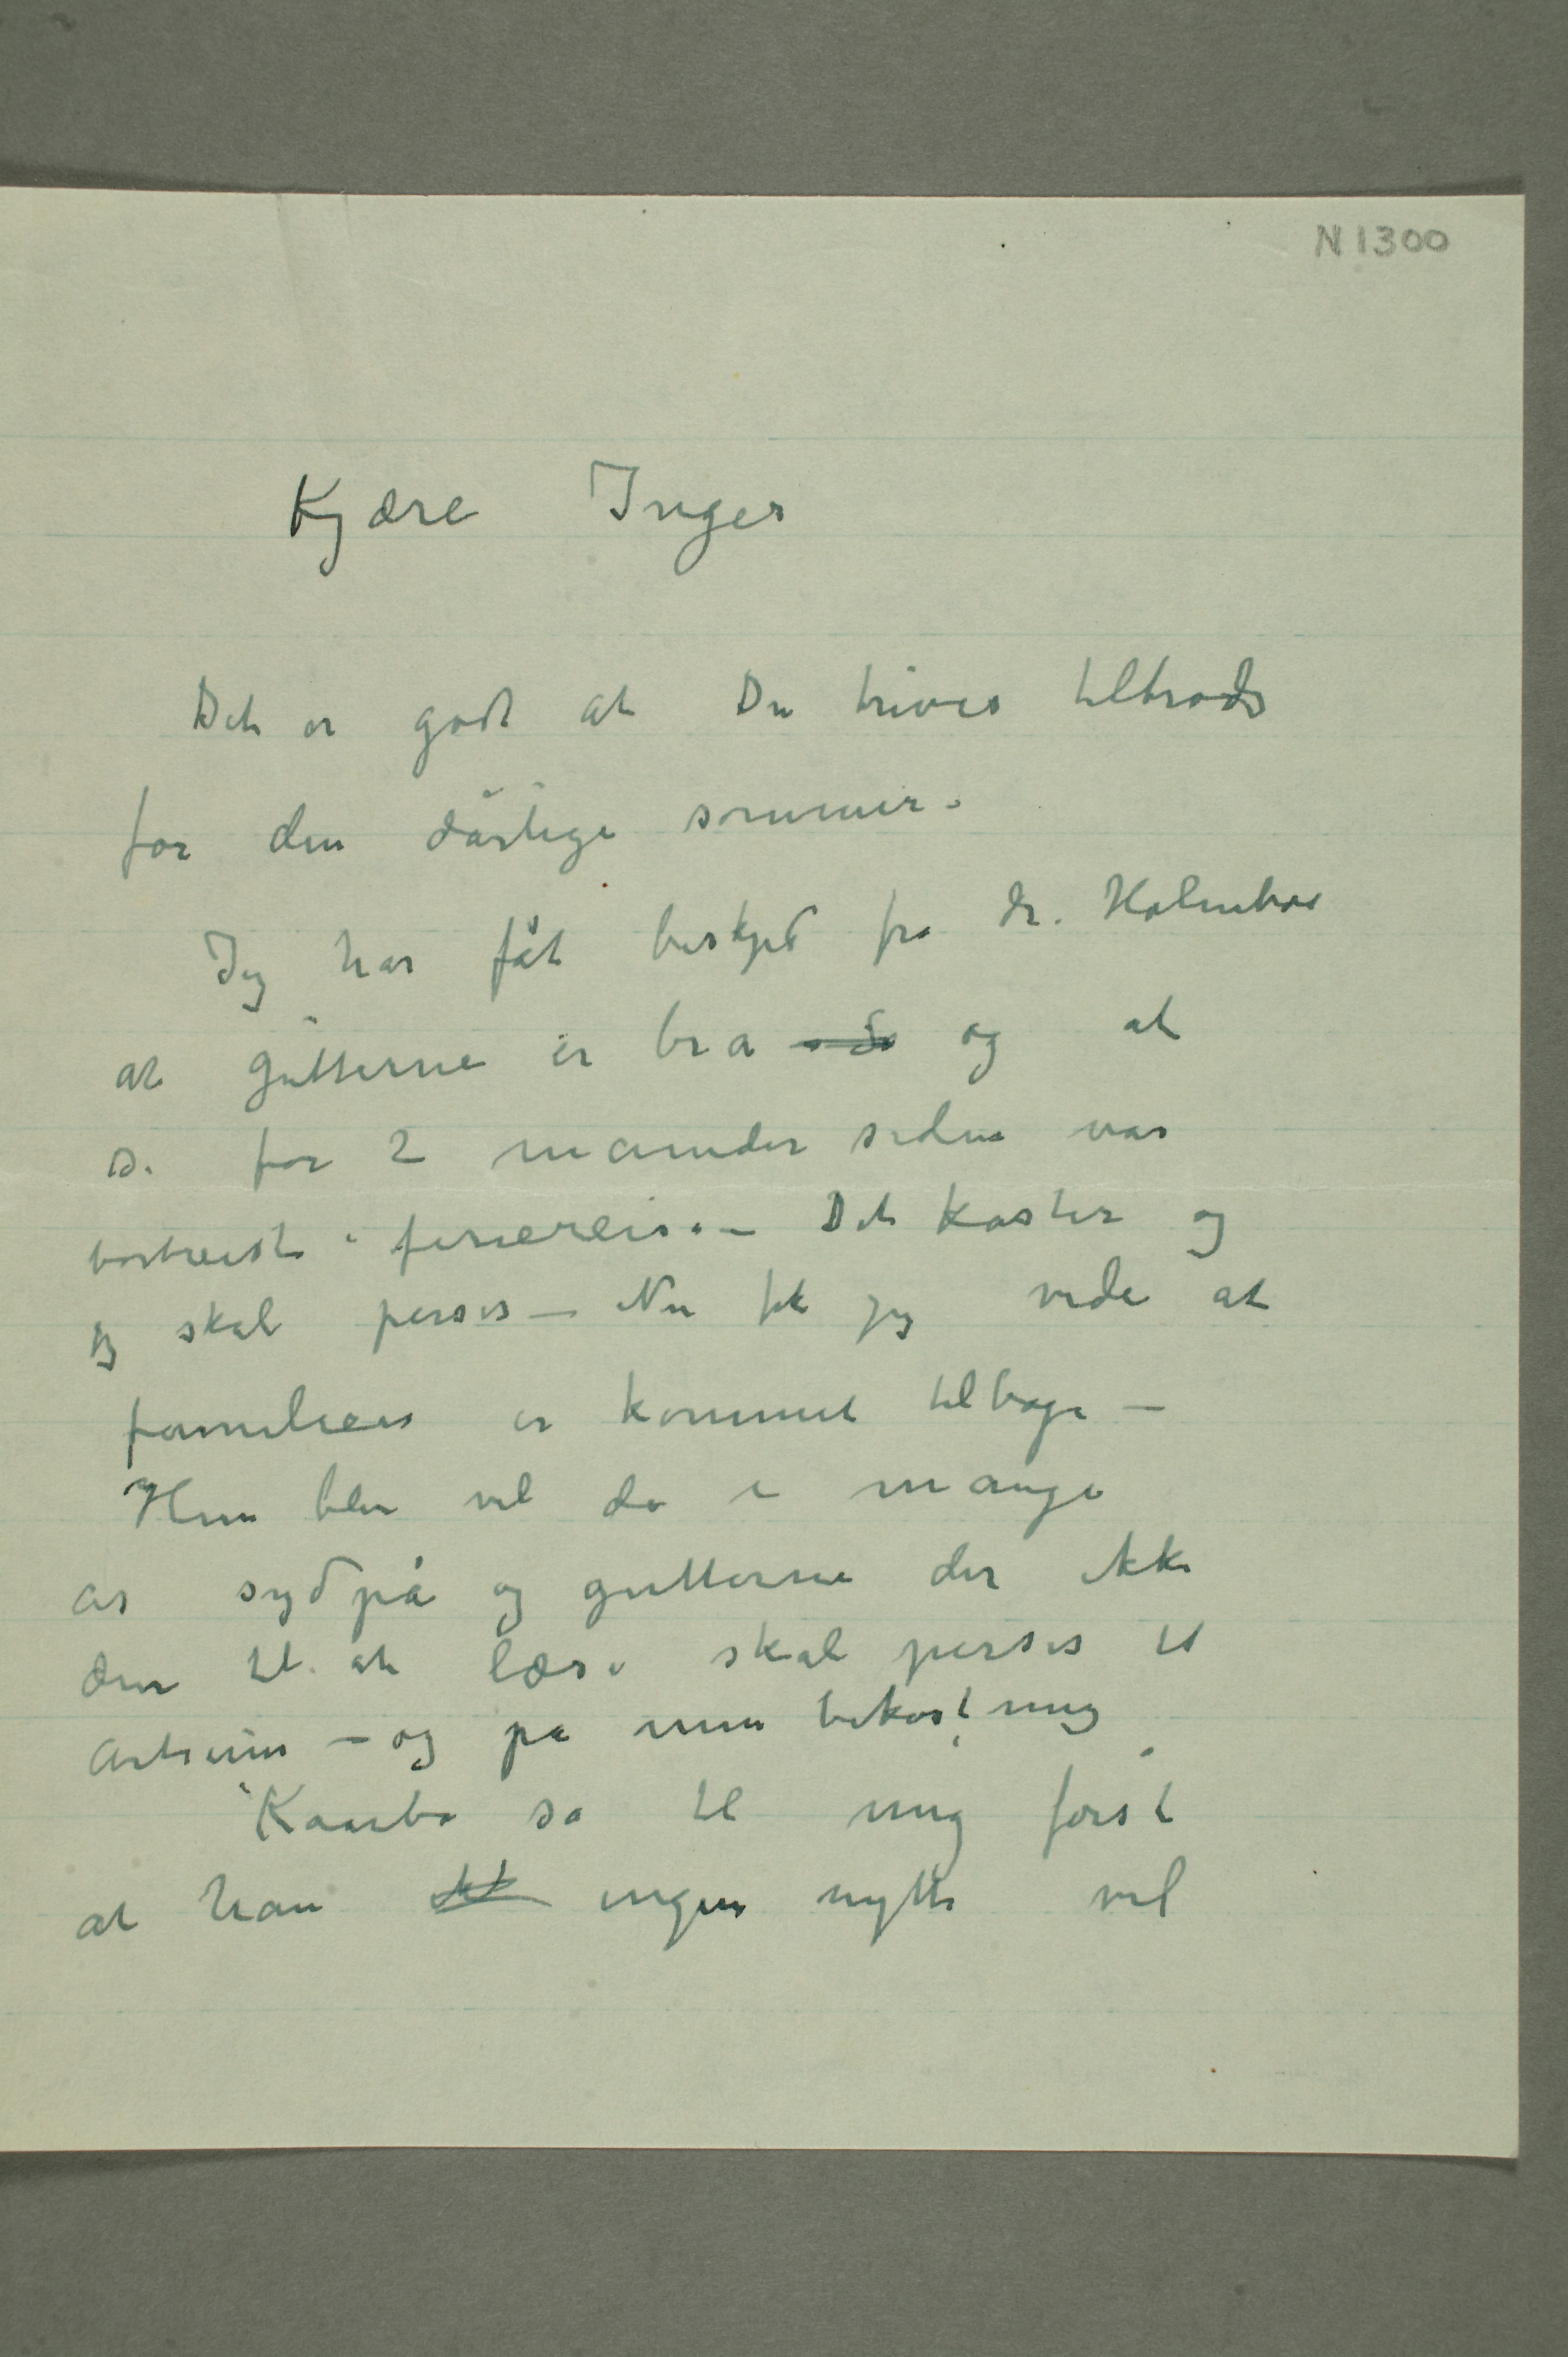 N 1300
Kjære Inger
Det er godt at Du trives tiltrods
for den dårlige sommer.
Jeg har fåt beskjed fra dr. Holmboe
at gutterne er bra og at
de for 2 maander siden var
bortreist i feriereise – Det koster og
jeg skal perses – Nu fik jeg vide at
familien er kommet tilbage –
Hun blir vel da i mange
år sydpå og gutterne der ikke
duer til at læse skal perses til
Artium – og på min bekostning
Kaarbø sa til mig først
at han ingen nytte vil